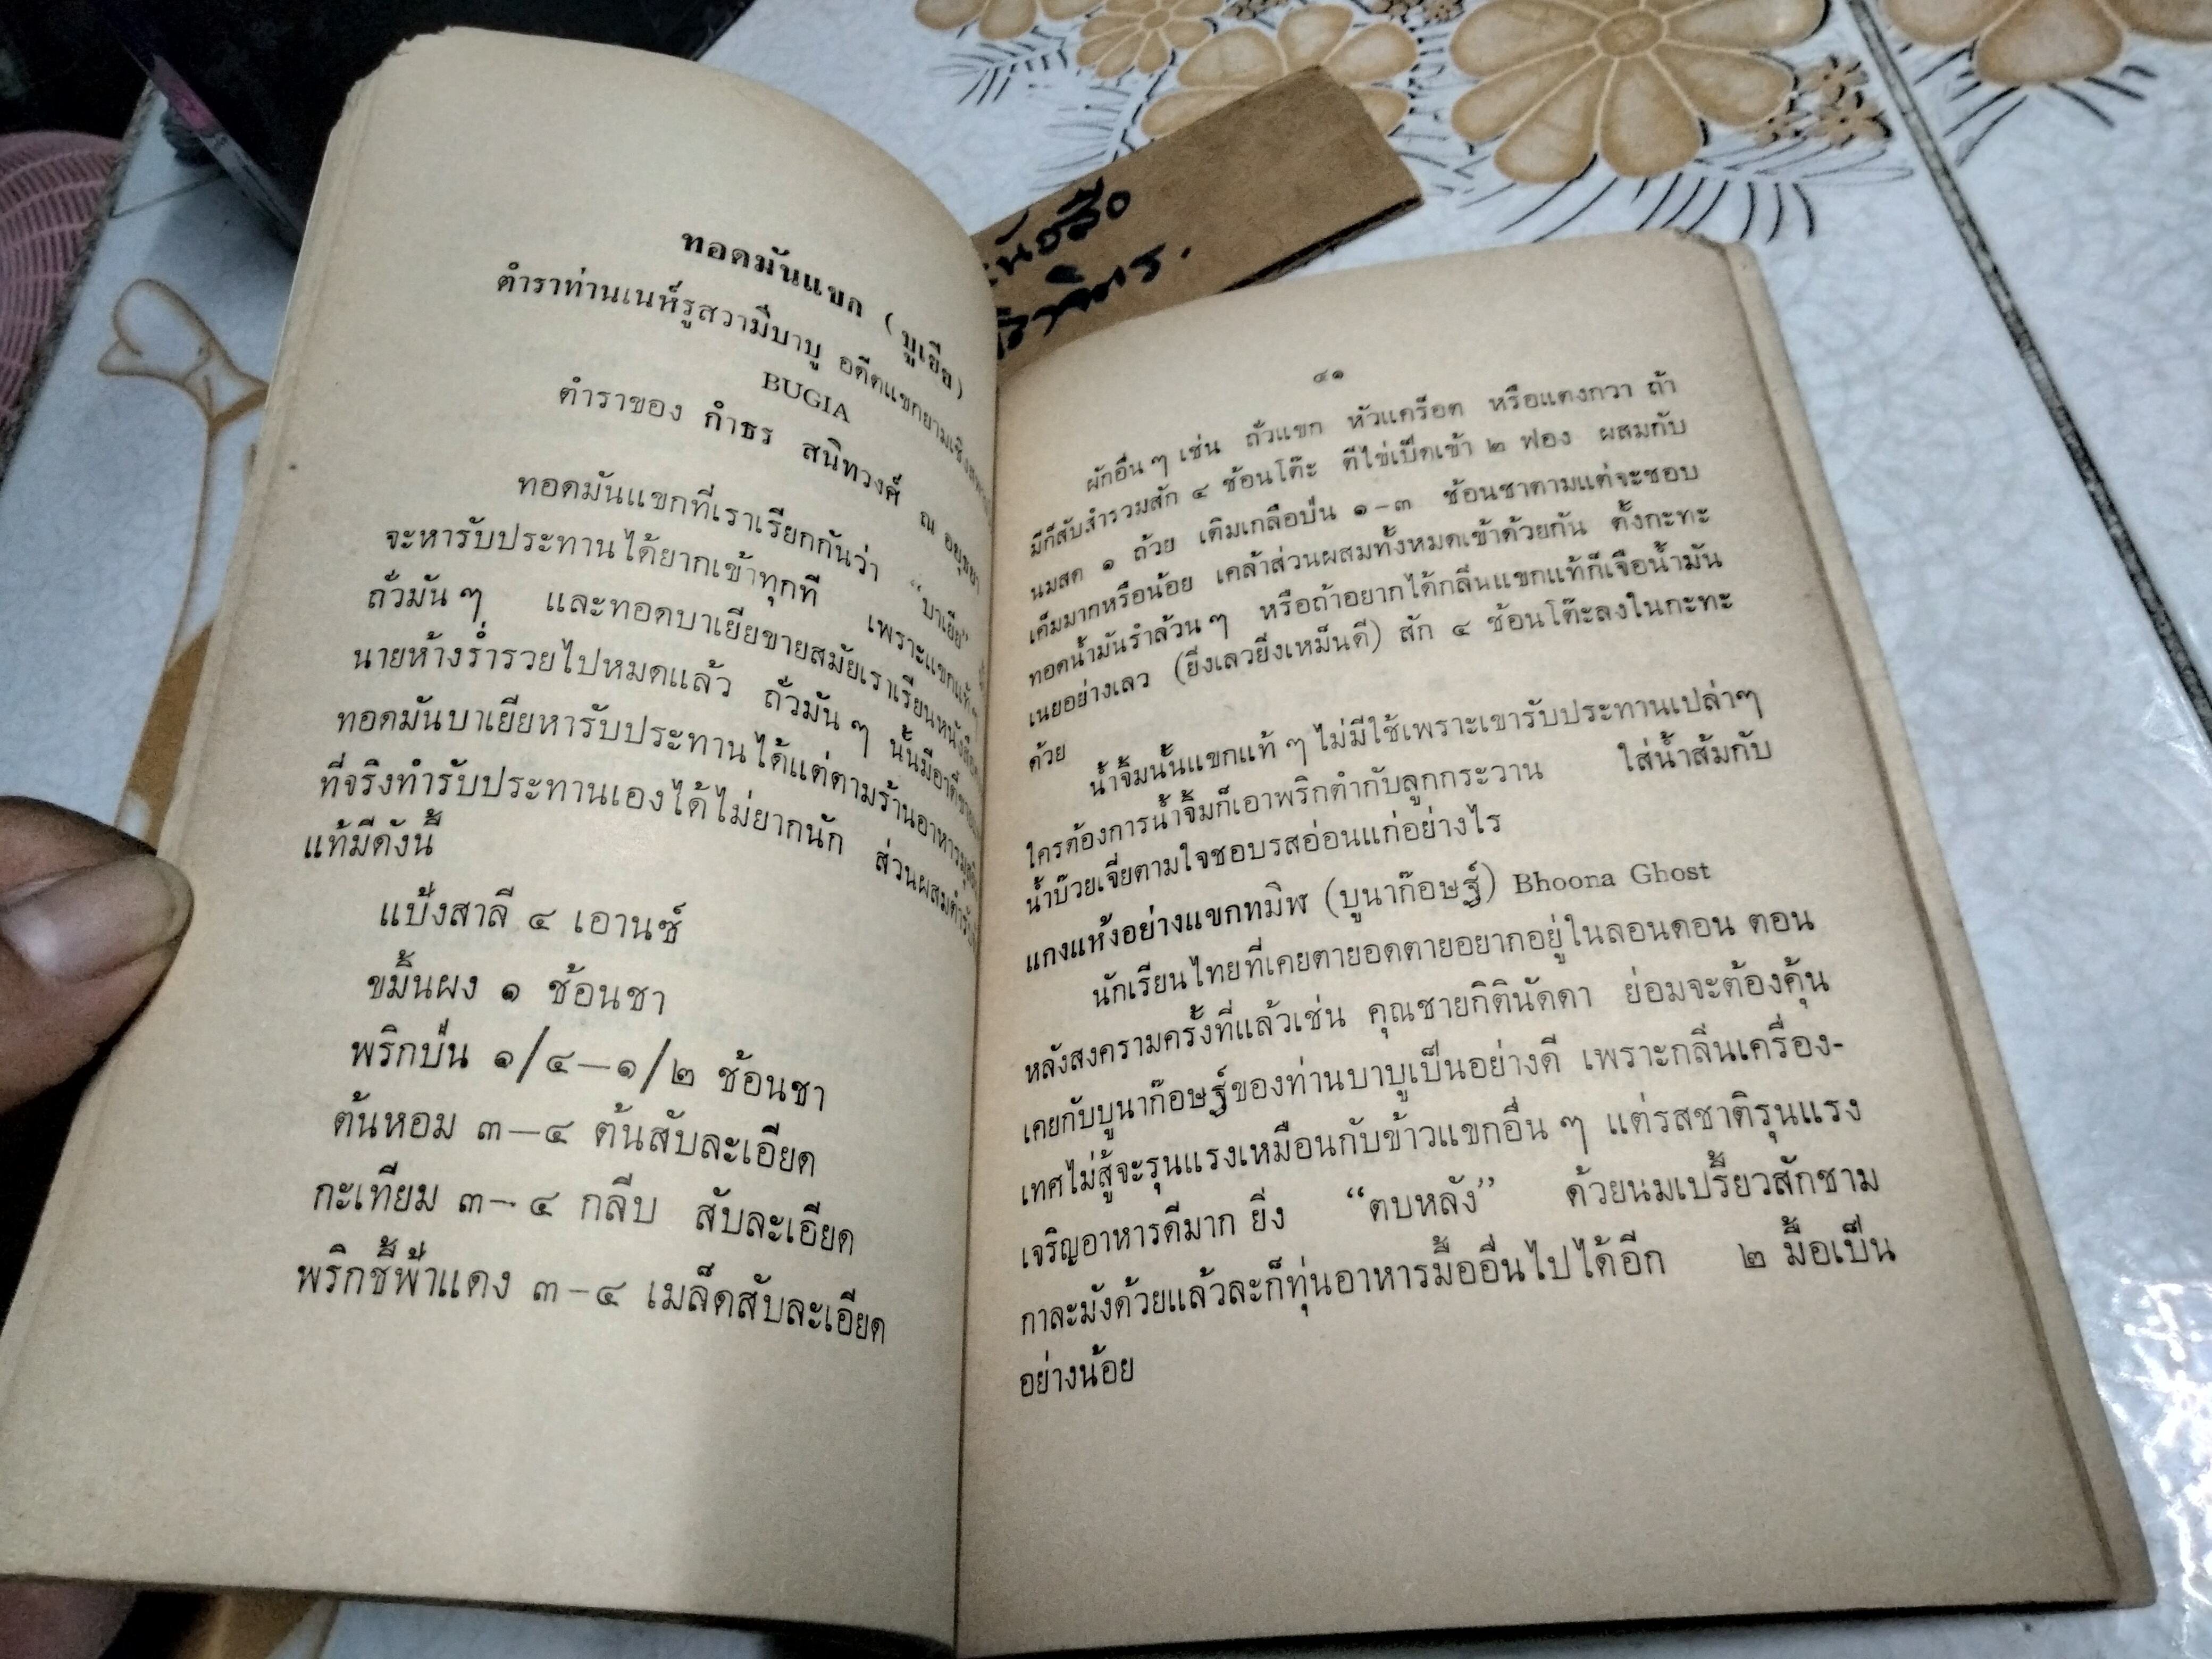 ทอดมันแขก (บูเยีย)
ตำราท่านเนห์รูสวามีบาบู อดีตแขกยามเชิง
BUGIA
ตำราของ กำธร สนิทวงศ์ ณ อยุธยา
ทอดมันแขกที่เราเรียกกันว่า “บาเยีย”
จะหารับประทานได้ยากเข้าทุกที เพราะแขกแท้ๆ
ถั่วมันๆ และทอดบาเยียขายสมัยเราเรียนหนังสือ
นายห้างร่ำรวยไปหมดแล้ว ถั่วมันๆ นั้นมีอาตี๋ขาย
ทอดมันบาเยียหารับประทานได้แต่ตามร้านอาหารมุสลิม
ที่จริงทำรับประทานเองได้ไม่ยากนัก ส่วนผสมตำรับ
แท้มีดังนี้
แป้งสาลี ๔ เอานซ์
ขมิ้นผง ๑ ช้อนชา
พริกป่น ๑/๔—๑/๒ ช้อนชา
ต้นหอม ๓—๔ ต้นสับละเอียด
กะเทียม ๓-๔ กลีบ สับละเอียด
พริกชี้ฟ้าแดง ๓-๔ เมล็ดสับละเอียด
๔๑
ผักอื่นๆ เช่น ถั่วแขก หัวแคร็อต หรือแตงกวา ถ้า
มีก็สับสำรวมสัก ๔ ช้อนโต๊ะ ตีไข่เป็ดเข้า ๒ ฟอง ผสมกับ
นมสด ๑ ถ้วย เติมเกลือป่น ๑-๓ ช้อนชาตามแต่จะชอบ
เค็มมากหรือน้อย เคล้าส่วนผสมทั้งหมดเข้าด้วยกัน ตั้งกะทะ
ทอดน้ำมันรำล้วนๆ หรือถ้าอยากได้กลิ่นแขกแท้ก็เจือน้ำมัน
เนยอย่างเลว (ยิ่งเลวยิ่งเหม็นดี) สัก ๔ ช้อนโต๊ะลงในกะทะ
ด้วย
น้ำจิ้มนั้นแขกแท้ๆ ไม่มีใช้เพราะเขารับประทานเปล่าๆ
ใครต้องการน้ำจิ้มก็เอาพริกตำกับลูกกระวาน ใส่น้ำส้มกับ
น้ำบ๊วยเจี่ยตามใจชอบรสอ่อนแก่อย่างไร
แกงแห้งอย่างแขกทมิฬ (บูนาก๊อษฐ์) Bhoona Ghost
นักเรียนไทยที่เคยตายอดตายอยากอยู่ในลอนดอน ตอน
หลังสงครามครั้งที่แล้วเช่น คุณชายกิตินัดดา ย่อมจะต้องคุ้น
เคยกับบูนาก๊อษฐ์ของท่านบาบูเป็นอย่างดี เพราะกลิ่นเครื่อง-
เทศไม่สู้จะรุนแรงเหมือนกับข้าวแขกอื่นๆ แต่รสชาติรุนแรง
เจริญอาหารดีมาก ยิ่ง “ตบหลัง” ด้วยนมเปรี้ยวสักชาม
กาละมังด้วยแล้วละก็ทุ่นอาหารมื้ออื่นไปได้อีก ๒ มื้อเป็น
อย่างน้อย